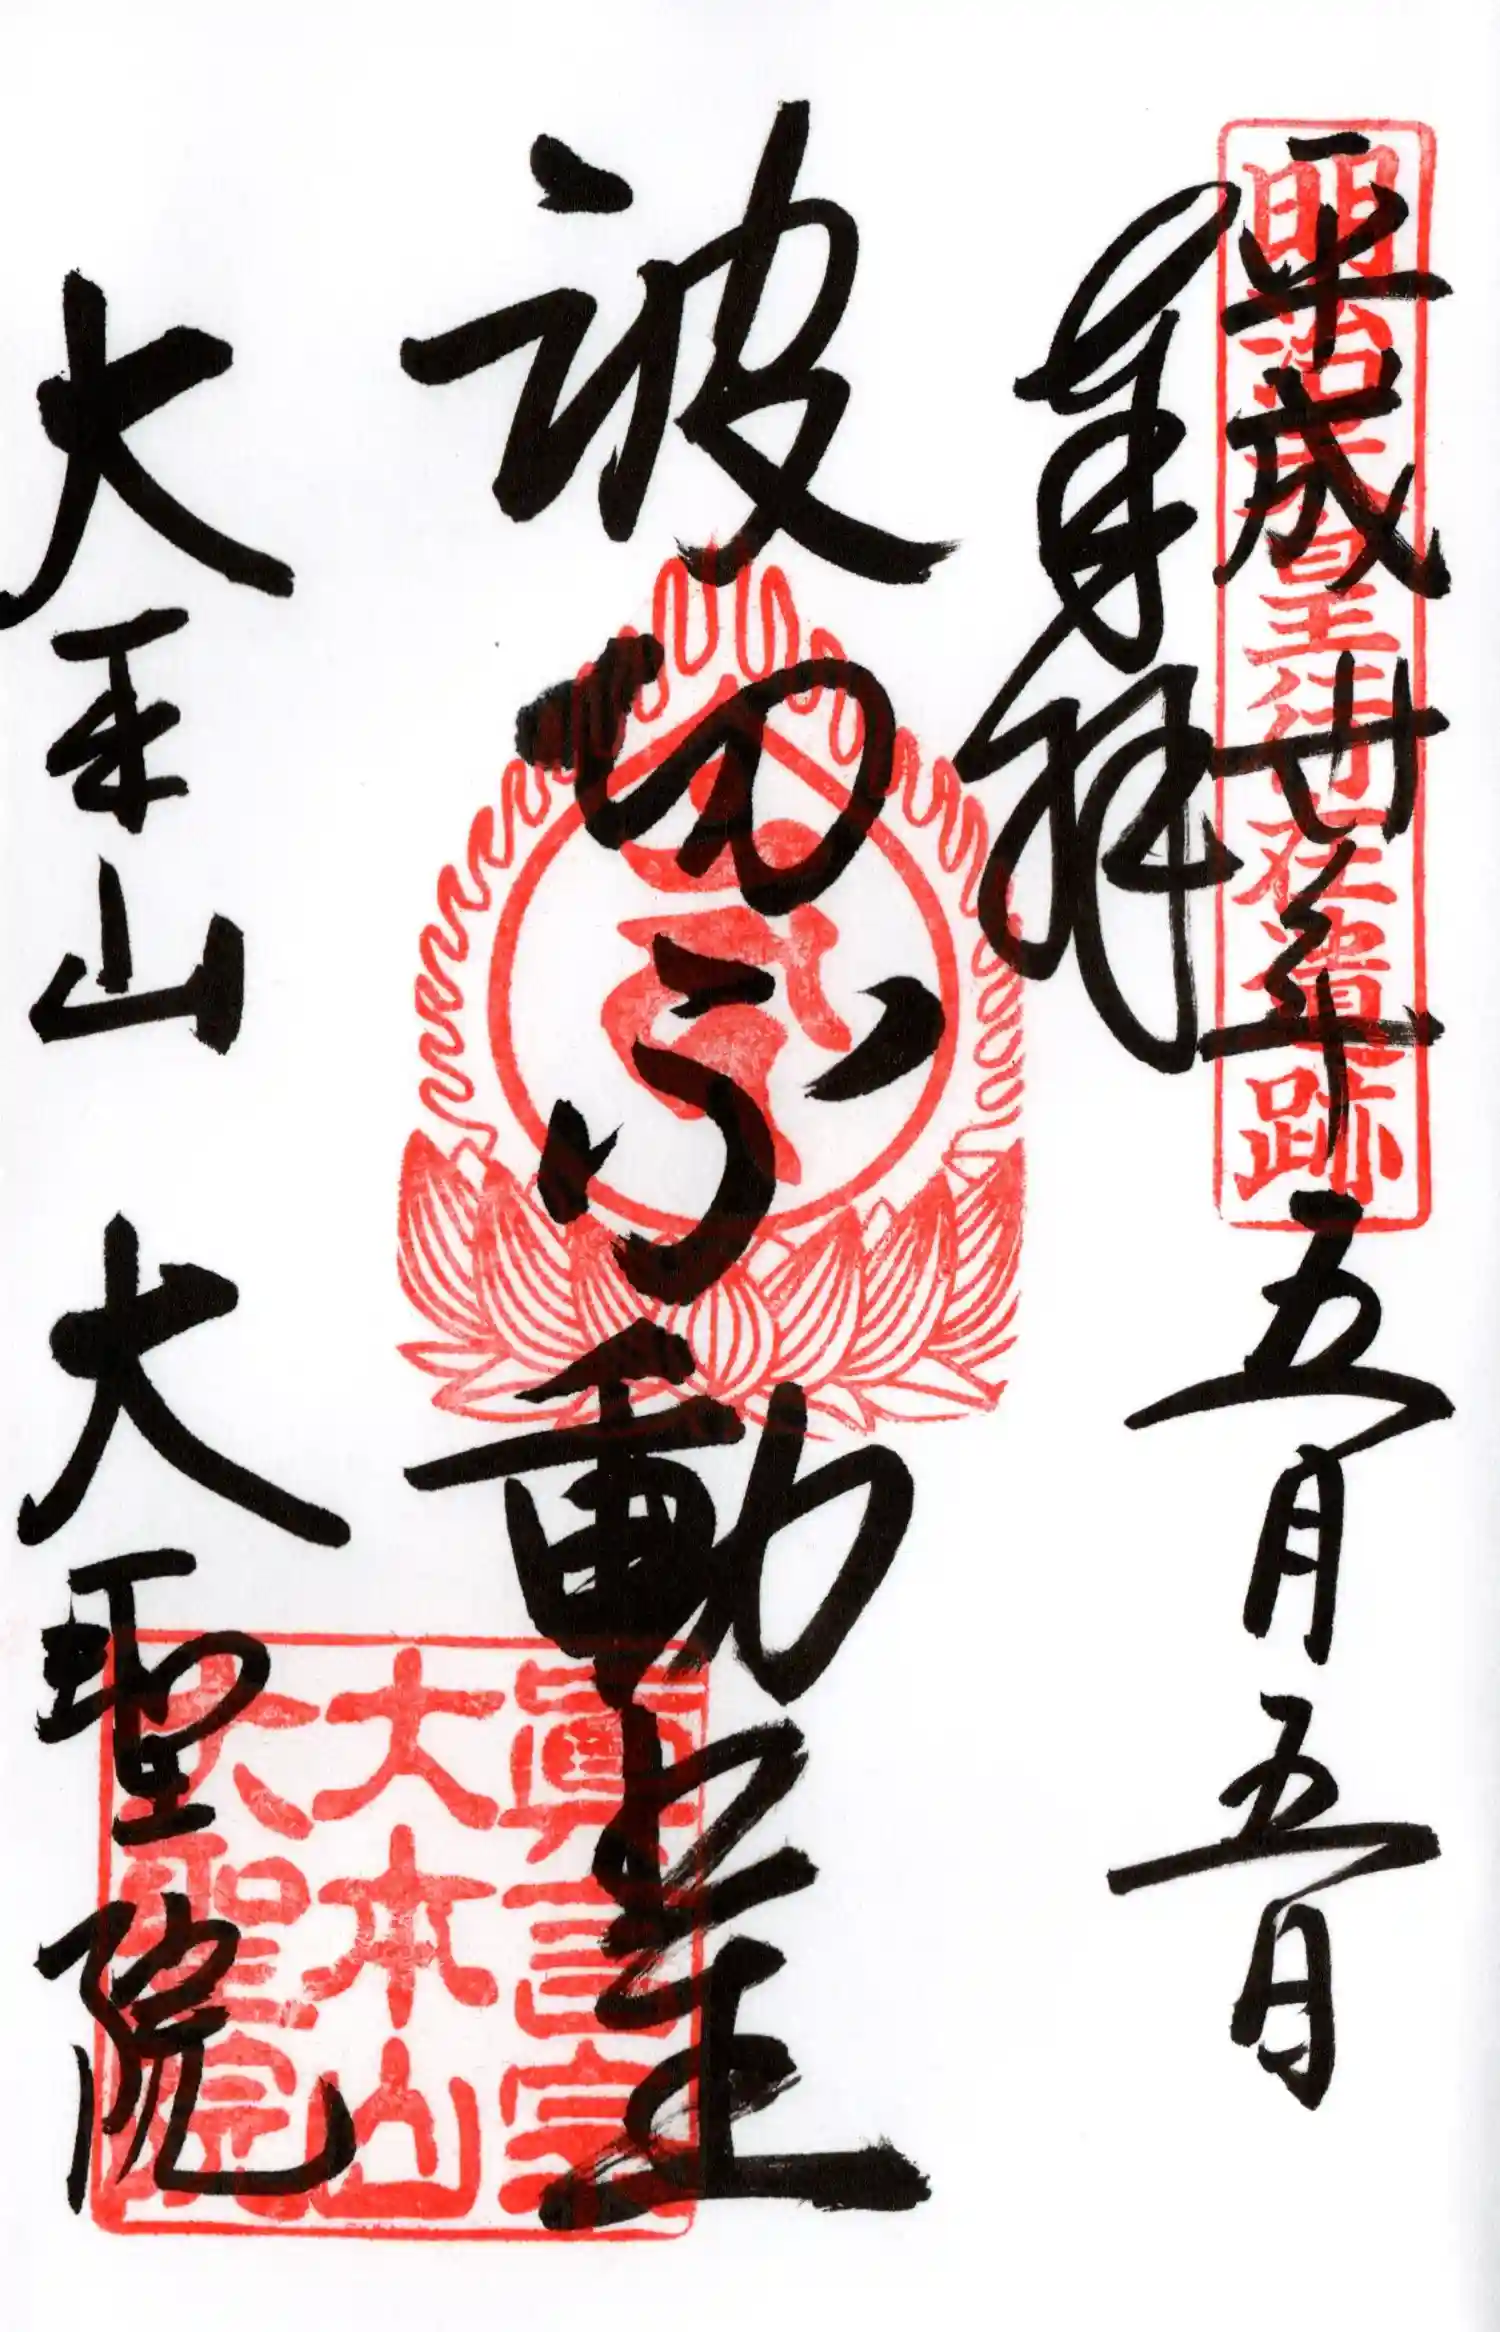 明治天皇行在遺跡
平成廿年五月五日
奉拝
波切不動明王
大本山 大聖院
眞言宗
大本山
大聖院